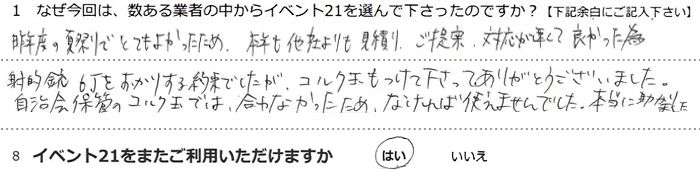 1 なぜ今回は、数ある業者の中からイベント21を選んで下さったのですか？【下記余白にご記入下さい】
昨年度の夏祭りでとてもよかったため、本年も他社よりも見積り、ご提案、対応が早くて良かった為
射的銃 6丁をおかりする約束でしたが、コルク玉もつけて下さってありがとうございました。
自治会保管のコルク玉では、合わなかったため、なければ使えませんでした。本当に助かりました
8 イベント21をまたご利用いただけますか はい いいえ